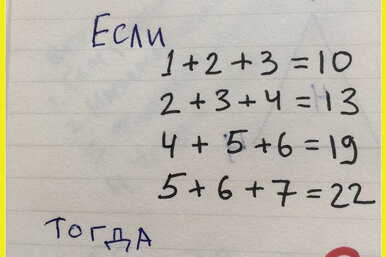 Если
1+2+3=10
2+3+4=13
4+5+6=19
5+6+7=22
тогда